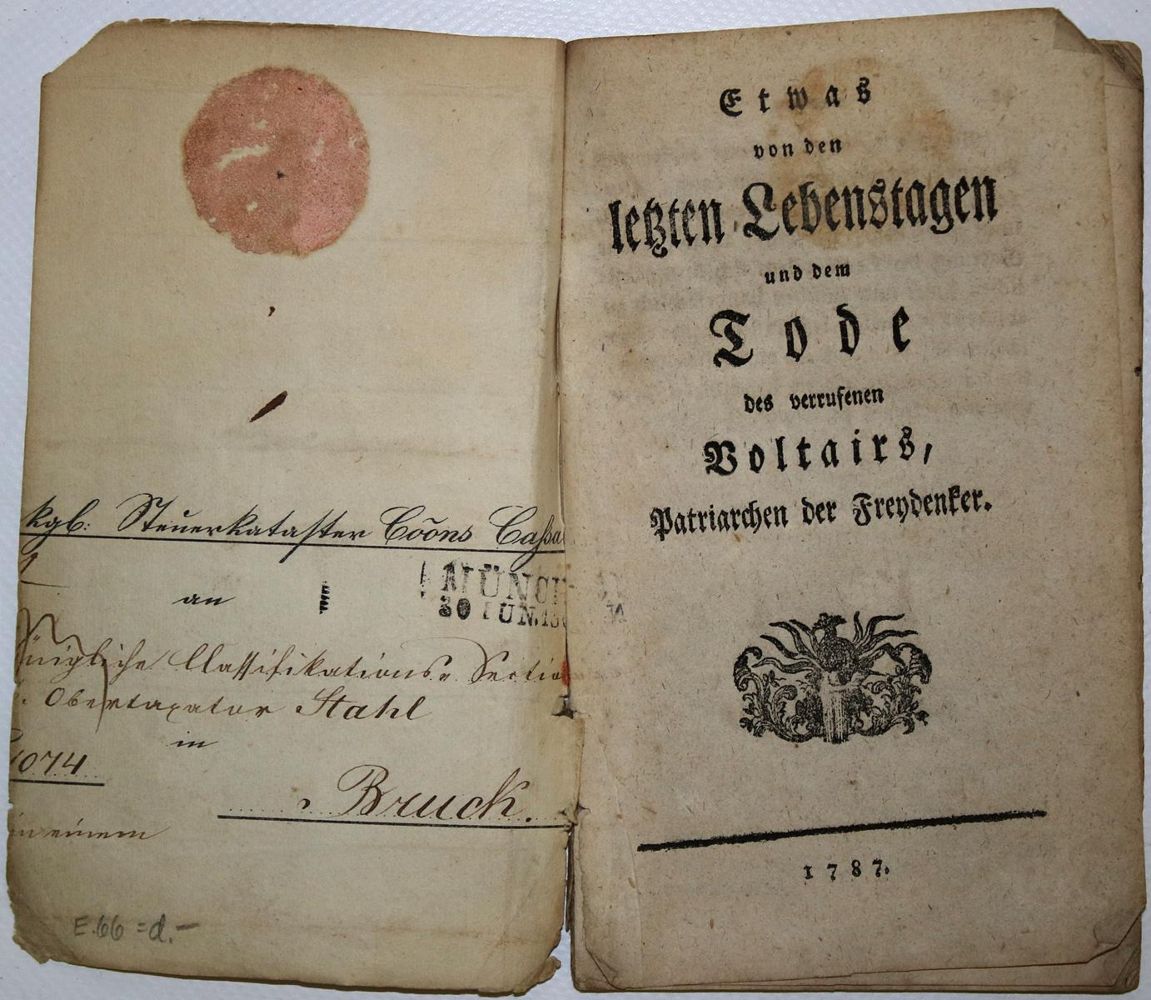 kgb: Steuerkataster Coõns Cassa
an
MÜNCH
30 IUN.
nigliche Classifikations- Sectio
Obertaxator Stahl
in
1074
Bruck.
in einem
E.66 = d.-
Etwas
von den
letzten Lebenstagen
und dem
Tode
des verrufenen
Voltairs,
Patriarchen der Freydenker.
1787.